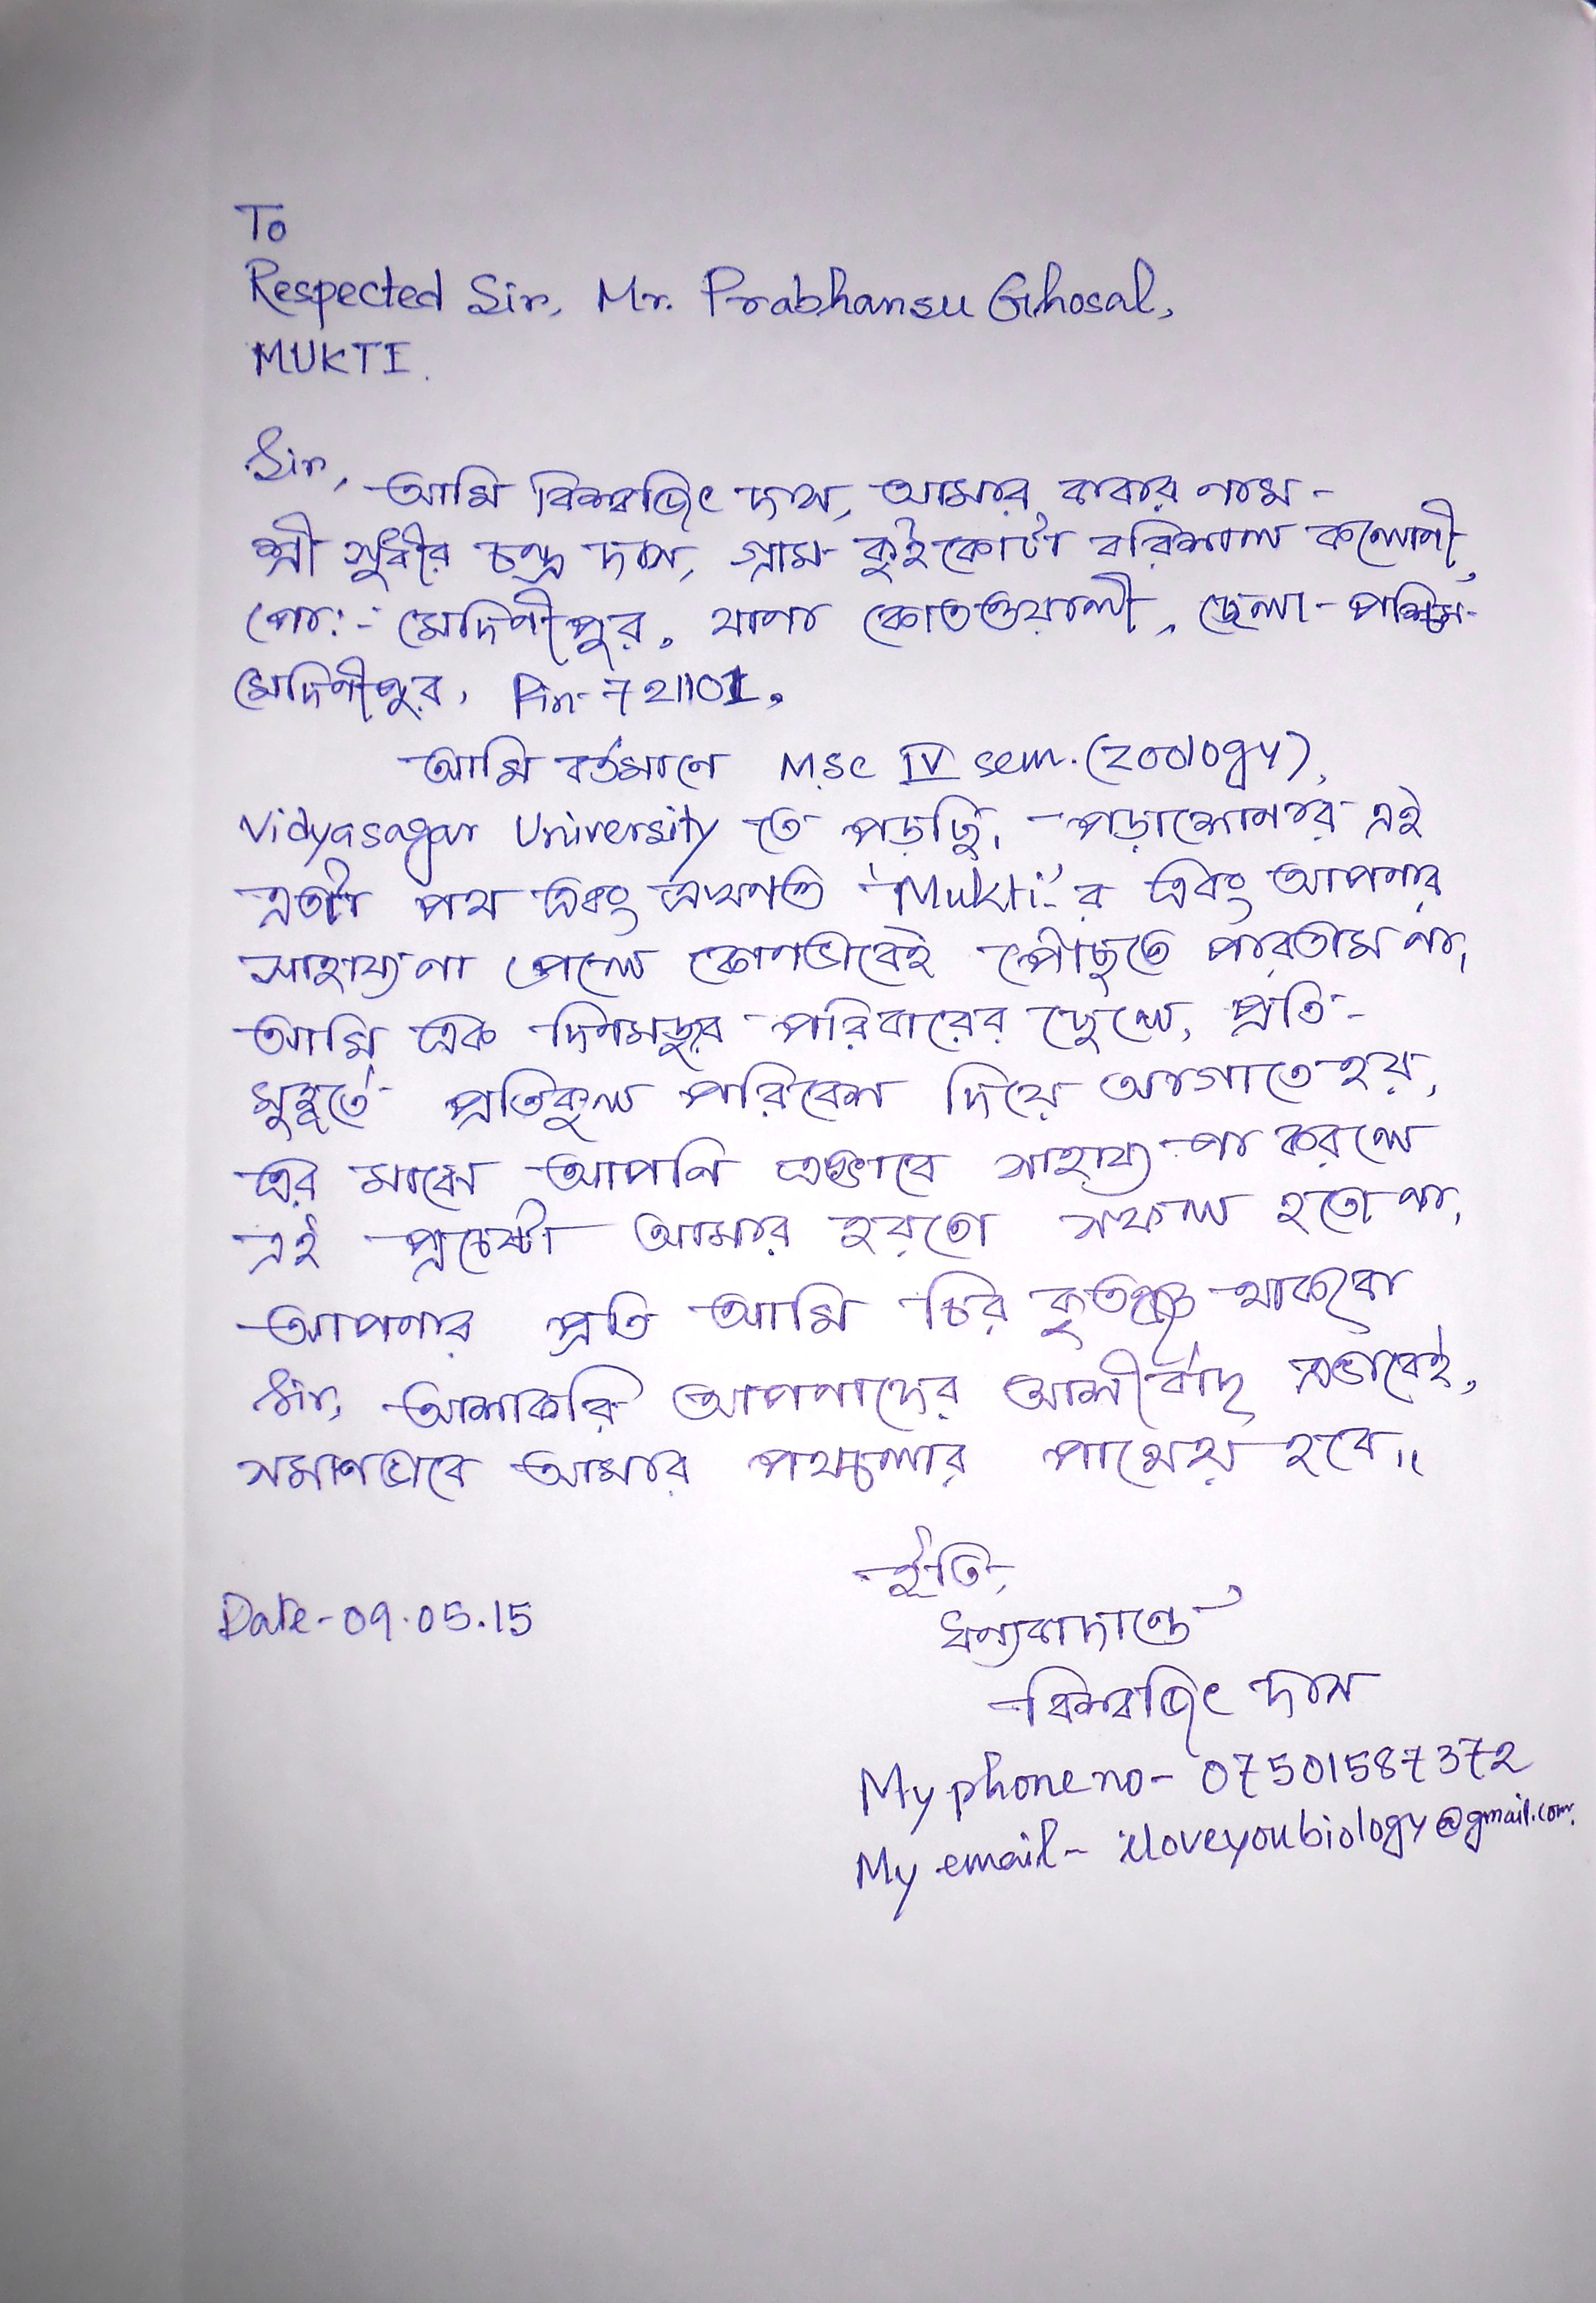 To
Respected Sir, Mr. Prabhansu Ghosal,
MUKTI.
Sir,
আমি বিশ্বজিৎ দাস, আমার বাবার নাম-
শ্রী সুধীর চন্দ্র দাস, গ্রাম- কুইকোটা বরিশাল কলোনী,
পো:- মেদিনীপুর, থানা কোতওয়ালী, জেলা- পশ্চিম-
মেদিনীপুর, Pin-721101,
আমি বর্তমানে M.sc IV sem. (zoology),
Vidyasagar University তে পড়ছি, পড়াশোনার এই
এতটা পথ এবং এখনও 'Mukti'র এবং আপনার
সাহায্য না পেলে কোনভাবেই পৌঁছতে পারতাম না,
আমি এক দিনমজুর পরিবারের ছেলে, প্রতি-
মুহূর্তে প্রতিকুল পরিবেশ দিয়ে আগাতে হয়,
এর মাঝে আপনি এভাবে সাহায্য না করলে
এই প্রচেষ্টা আমার হয়তো সফল হতো না,
আপনার প্রতি আমি চির কৃতজ্ঞ থাকবো
Sir, আশাকরি আপনাদের আশীর্বাদ এভাবেই,
সমানভাবে আমার পথচলার পাথেয় হবে।।
ইতি,
Date-09.05.15
ধন্যবাদান্তে,
বিশ্বজিৎ দাস
My phone no- 07501587372
My email- iloveyoubiology@gmail.com.